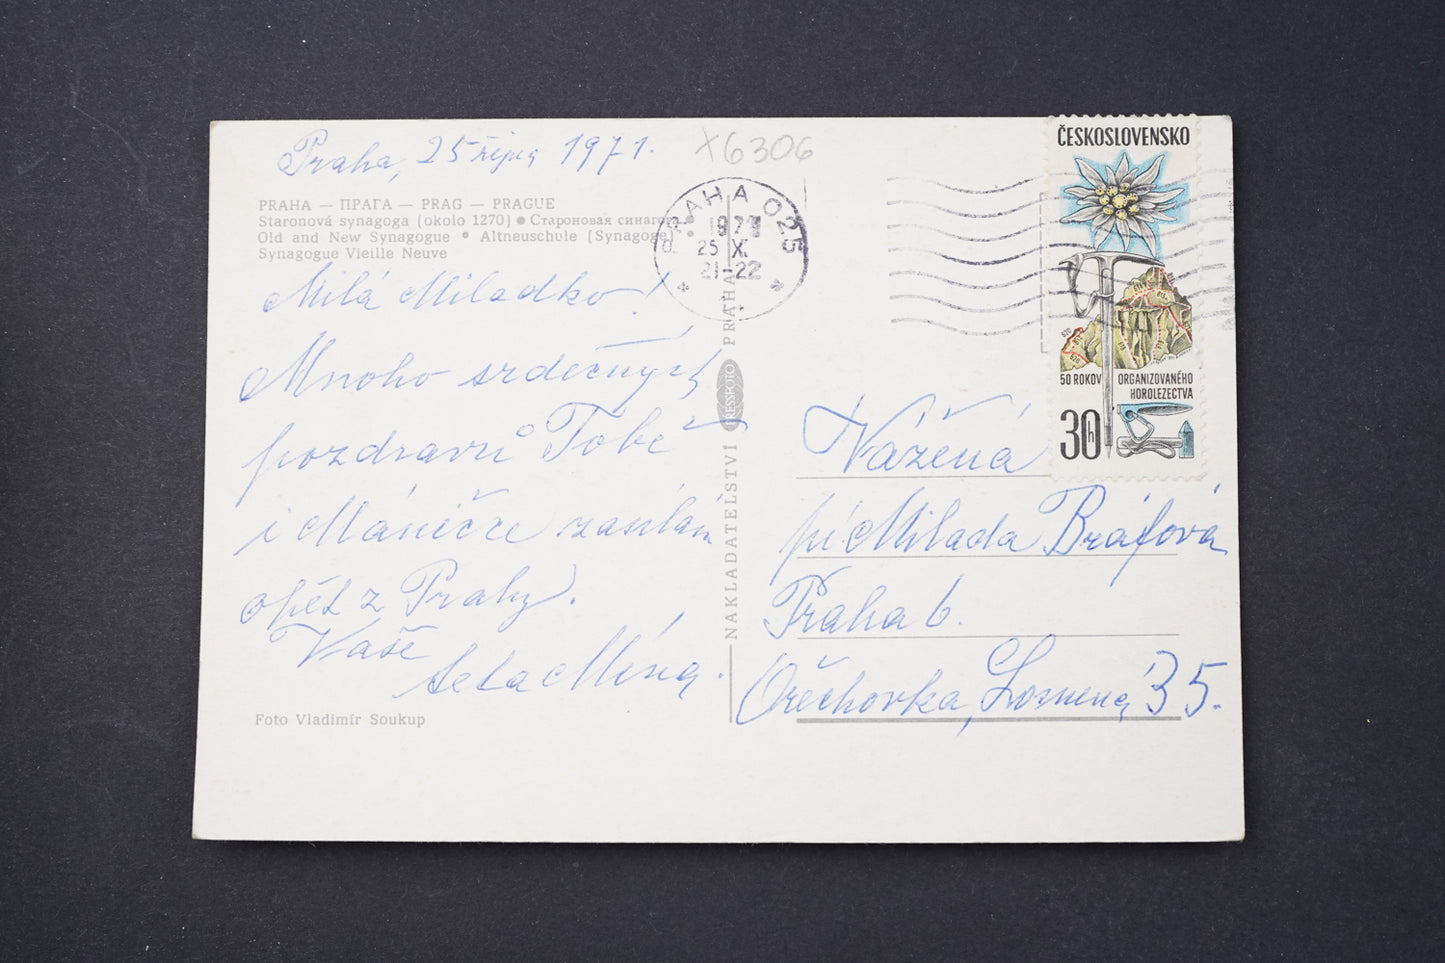 Praha, 25 října 1971.
X6306
PRAHA — ПРАГА — PRAG — PRAGUE
Staronová synagoga (okolo 1270) ● Староновая синагога
Old and New Synagogue ● Altneuschule (Synagoge)
Synagogue Vieille Neuve
Milá Miladko!
Mnoho srdečných
pozdravů Tobě
i Máničce zasílám
opět z Prahy.
Vaše
teta Mína.
Foto Vladimír Soukup
NAKLADATELSTVÍ PRESSFOTO PRAHA
PRAHA 025
1971
25 X.
21-22
ČESKOSLOVENSKO
50 ROKOV ORGANIZOVANÉHO
HOROLEZECTVA
30h
Vážená
pí Milada Bráfová
Praha 6.
Ořechovka, Lomená 35.